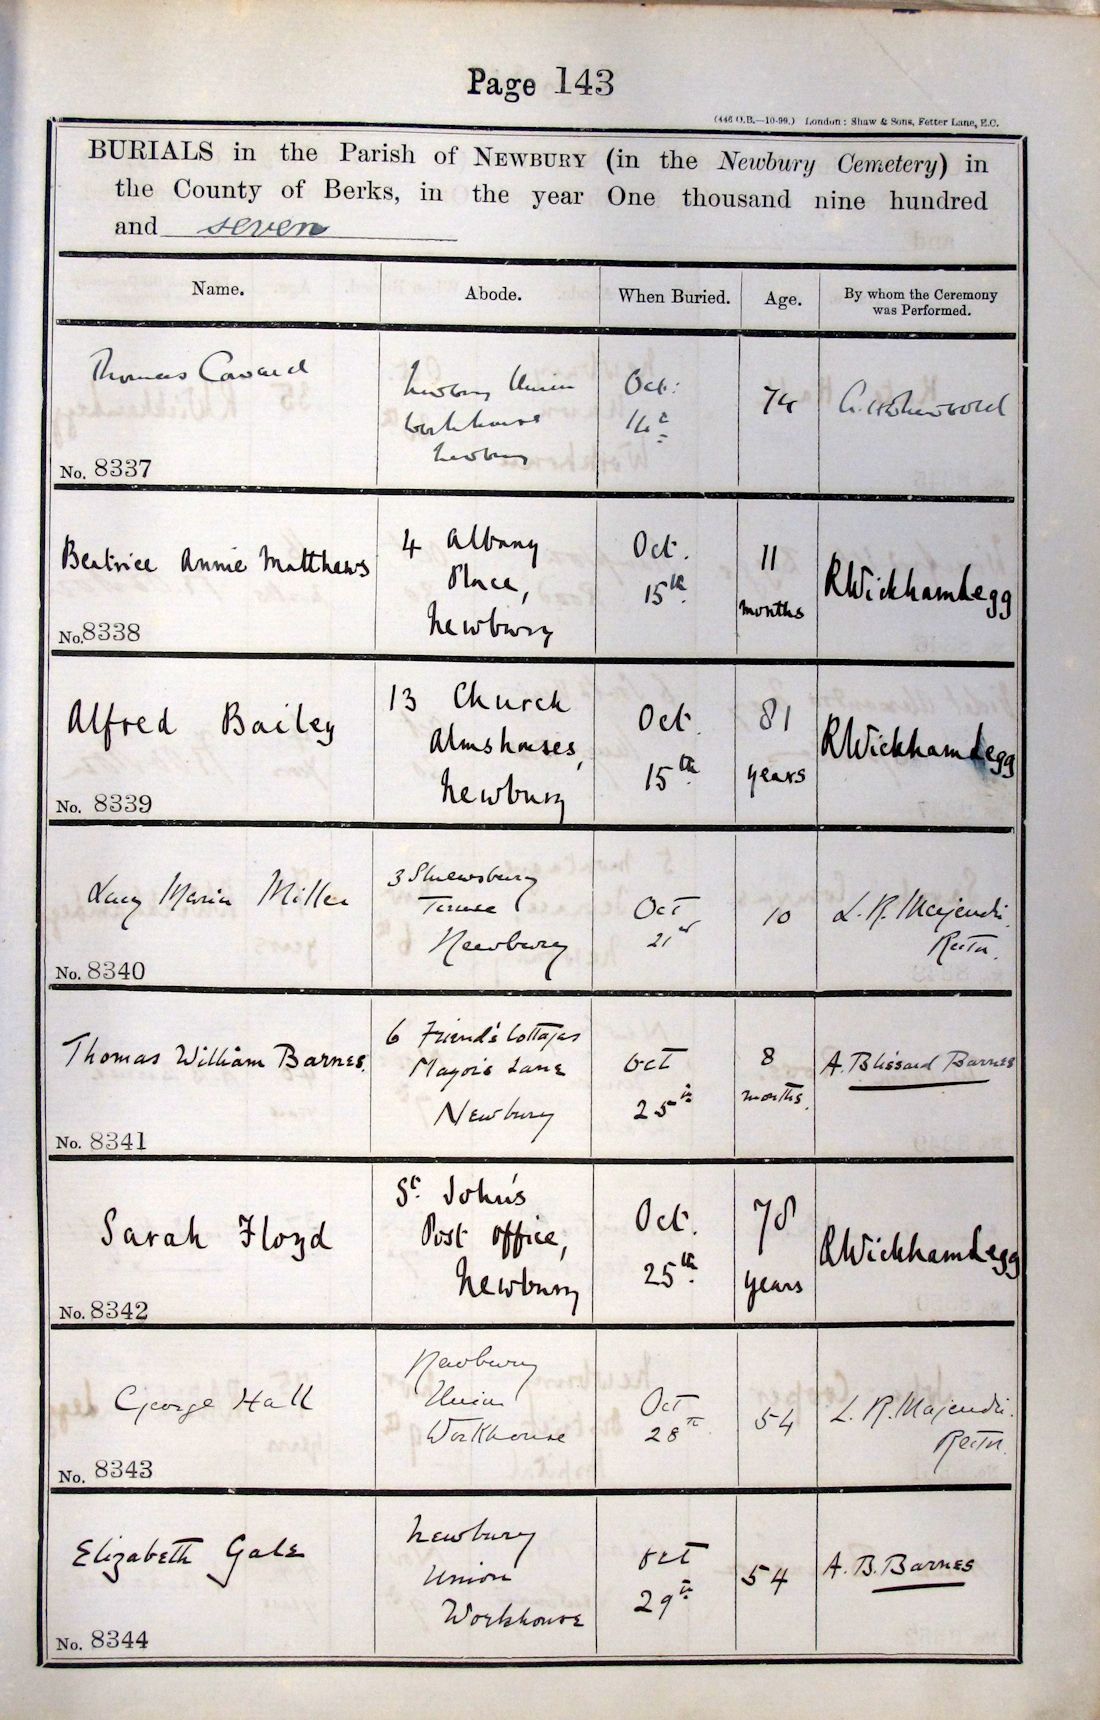 Page 143
(446 O.B.—10-99.) London: Shaw & Sons, Fetter Lane, E.C.
BURIALS in the Parish of NEWBURY (in the Newbury Cemetery) in
the County of Berks, in the year One thousand nine hundred
and seven
Name. Abode. When Buried. Age. By whom the Ceremony was Performed.
Thomas Coward
Newbury Union
Workhouse
Newbury
Oct:
14
74
No. 8337
Beatrice Annie Matthews
4 Albany
Place,
Newbury
Oct.
15th
11
months
RWickhamLegg
No. 8338
Alfred Bailey
13 Church
Almshouses,
Newbury
Oct.
15th
81
years
RWickhamLegg
No. 8339
Lucy Maria Miller
3 Shrewsbury
Terrace
Newbury
Oct
21st
10
L. R. Majendie
Rector.
No. 8340
Thomas William Barnes.
6 Friend's Cottages
Mayor's Lane
Newbury
Oct
25th
8
months.
A. Blissard Barnes
No. 8341
Sarah Floyd
St. John's
Post Office,
Newbury
Oct.
25th
78
years
RWickhamLegg
No. 8342
George Hall
Newbury
Union
Workhouse
Oct
28th
54
L. R. Majendie.
Rector.
No. 8343
Elizabeth Gale
Newbury
Union
Workhouse
Oct
29th
54
A. B. Barnes
No. 8344